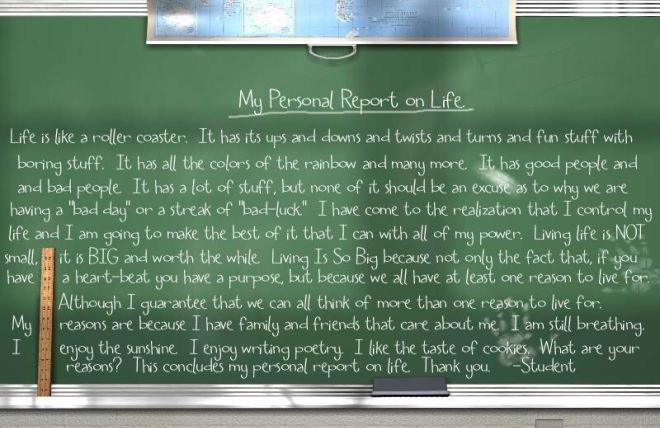 My Personal Report on Life.
Life is like a roller coaster. It has its ups and downs and twists and turns and fun stuff with
boring stuff. It has all the colors of the rainbow and many more. It has good people and
and bad people. It has a lot of stuff, but none of it should be an excuse as to why we are
having a "bad day" or a streak of "bad-luck." I have come to the realization that I control my
life and I am going to make the best of it that I can with all of my power. Living life is NOT
small, it is BIG and worth the while. Living Is So Big because not only the fact that, if you
have a heart-beat you have a purpose, but because we all have at least one reason to live for.
Although I guarantee that we can all think of more than one reason to live for.
My reasons are because I have family and friends that care about me. I am still breathing.
I enjoy the sunshine. I enjoy writing poetry. I like the taste of cookies. What are your
reasons? This concludes my personal report on life. Thank you. -Student